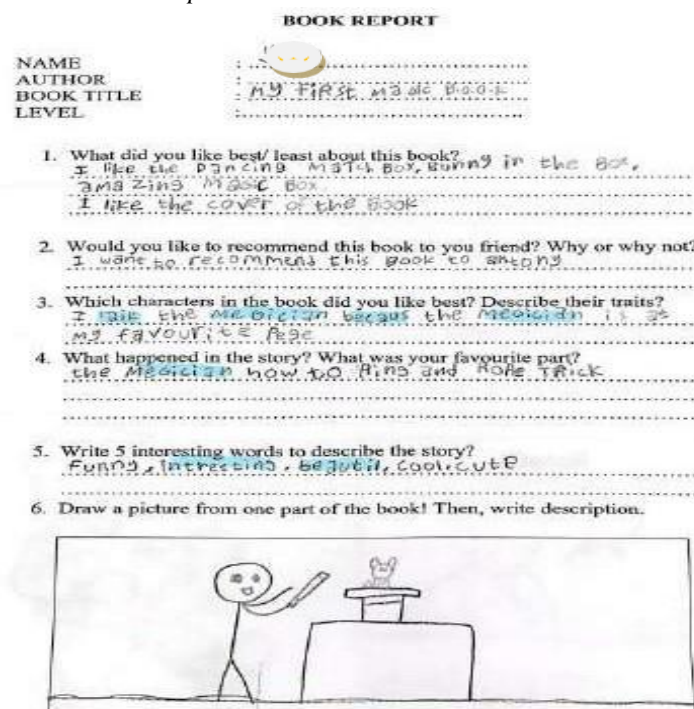 BOOK REPORT
NAME :
AUTHOR :
BOOK TITLE : My First Magic Book
LEVEL :
1. What did you like best/ least about this book?
I like the Dancing Match Box, Bunny in the Box,
amazing Magic Box
I like the cover of the Book
2. Would you like to recommend this book to you friend? Why or why not?
I want to recommend this Book to antony
3. Which characters in the book did you like best? Describe their traits?
I laik the Megician becaus the Megician is as
my favourite Page
4. What happened in the story? What was your favourite part?
the Megician how to Ring and Rope Trick
5. Write 5 interesting words to describe the story?
Funny, intresting, beautil, cool, cute
6. Draw a picture from one part of the book! Then, write description.